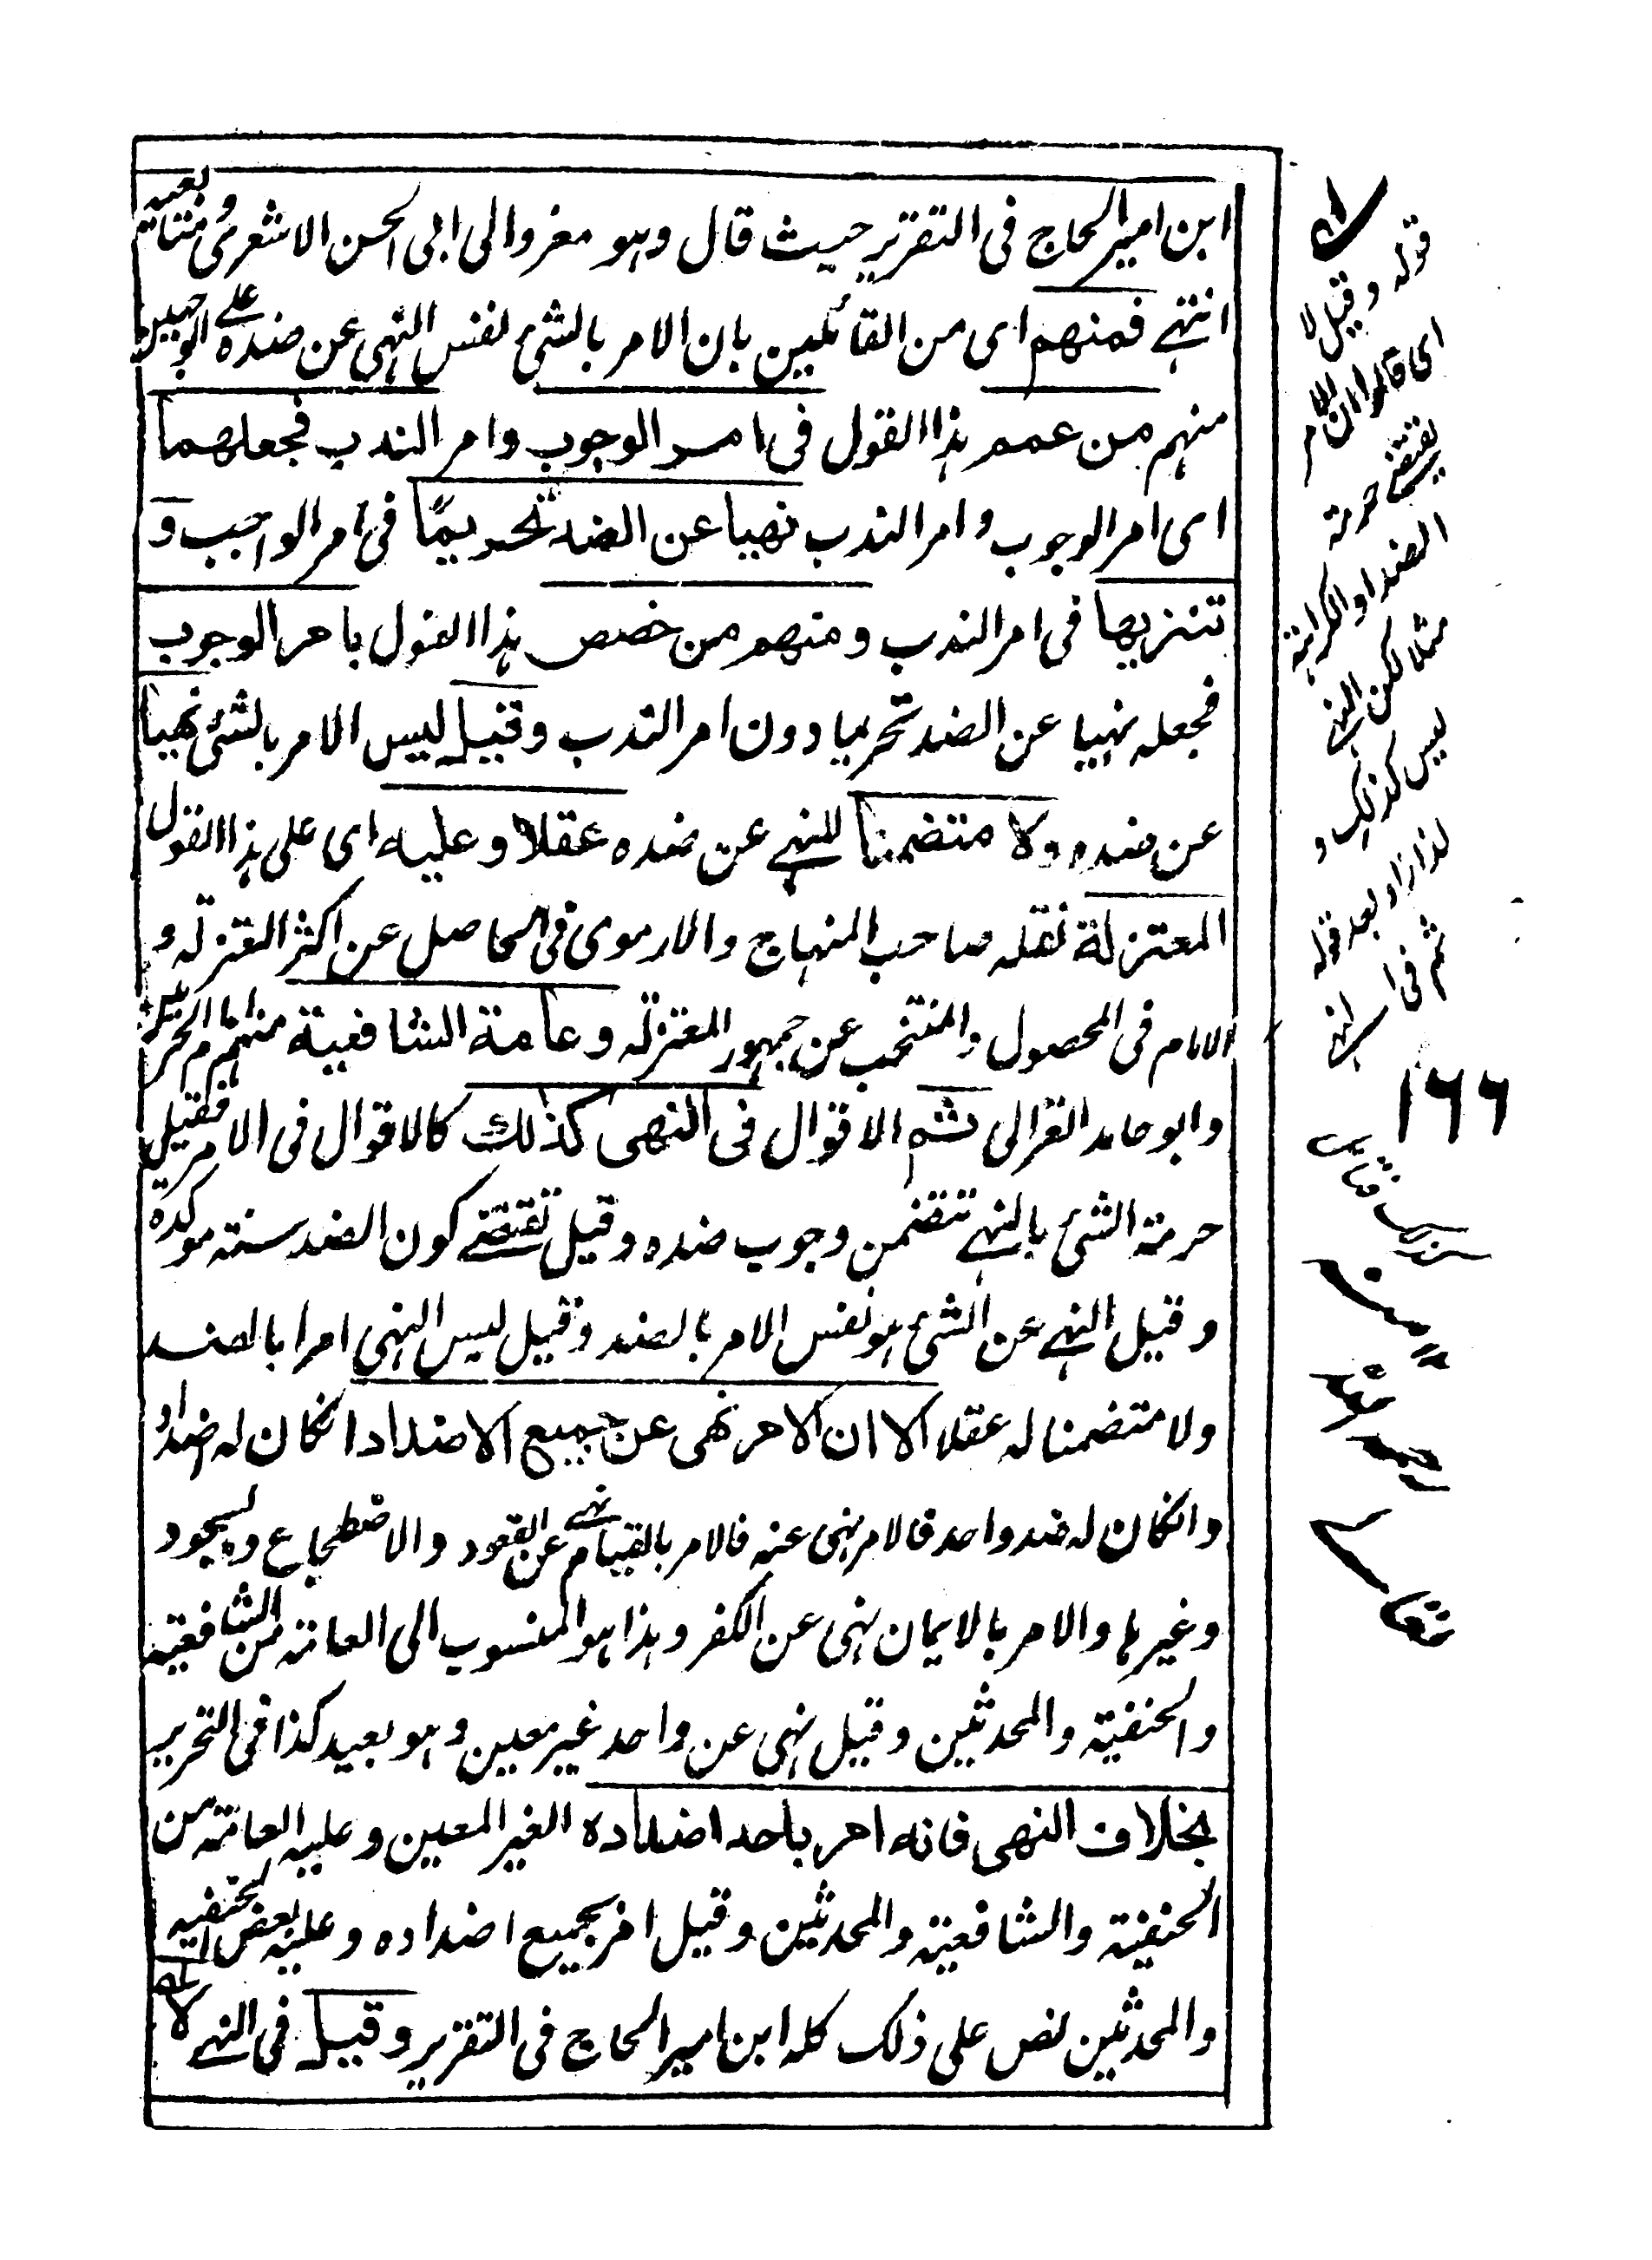 ابن امير الحاج فى التقرير حيث قال وهو معزو الى ابى الحسن الاشعرى و متابعيه
انتهى فمنهم اى من القائلين بان الامر بالشئ نفس النهى عن ضده على الوجهين
منهم من عمم هذا القول فى امر الوجوب وامر الندب فجعلهما
اى امر الوجوب وامر الندب نهيا عن الضد تحريمًا فى امر الواجب و
تنزيها فى امر الندب ومنهم من خصص هذا القول بامر الوجوب
فجعله نهيا عن الضد تحريما دون امر الندب وقيل ليس الامر بالشئ نهيا
عن ضده ولا متضمنا للنهى عن ضده عقلا وعليه اى على هذا القول
المعتزلة نقله صاحب المنهاج والارموى فى الحاصل عن اكثر المعتزله و
الامام فى المحصول والمنتخب عن جمهور المعتزله وعامة الشافعية منهم امام الحرمين
وابو حامد الغزالى ثم الاقوال فى النهى كذلك كالاقوال فى الامر فقيل
حرمة الشئ بالنهى تتضمن وجوب ضده وقيل تقتضى كون الضد سنته موكده
وقيل النهى عن الشئ هو نفس الامر بالضد وقيل ليس النهى امرا بالضد
ولا متضمنا له عقلا الا ان الامر نهى عن جميع الاضداد انكان له اضداد
وانكان له ضد واحد فالامر نهى عنه فالامر بالقيام نهى عن القعود والاضطجاع والسجود
وغيرها والامر بالايمان نهى عن الكفر وهذا هو المنسوب الى العامة من الشافعية
والحنفية والمحدثين وقيل نهى عن واحد غير معين وهو بعيد كذا فى التحرير
بخلاف النهى فانه امر باحد اضداده الغير المعين وعليه العامة من
الحنفية والشافعية والمحدثين وقيل امر بجميع اضداده وعليه بعض الحنفيه
والمحدثين نص على ذلك كله ابن امير الحاج فى التقرير وقيل فى النهى لا
قوله وقيل لا
اى قالوا ان الامر
يقتضى حرمة
الضد او الكراهة
مثلا لكن النهى
ليس كذلك و
لذا زاد بعد قوله
ثم فى النهى
١٦٦